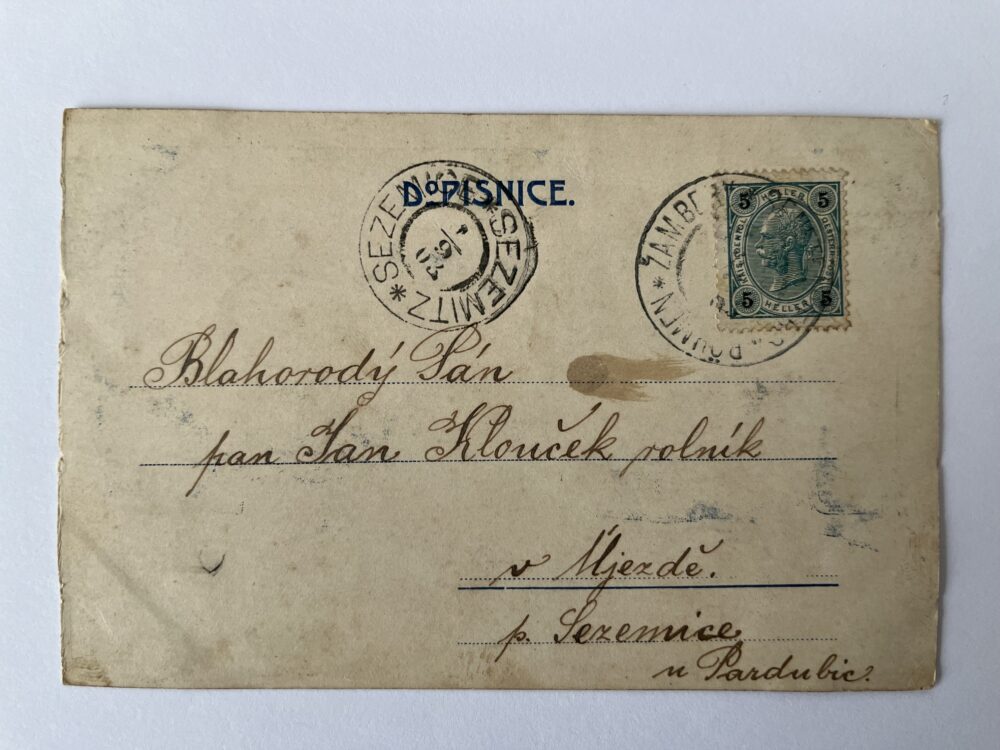 DOPISNICE.
* SEZEMICE * SEZEMITZ
1/9
03
* ŽAMBE
BÖHMEN
5 HELLER 5
5 HELLER 5
Blahorodý Pán
pan Jan Klouček rolník
v Újezdě.
p. Sezemice
u Pardubic.